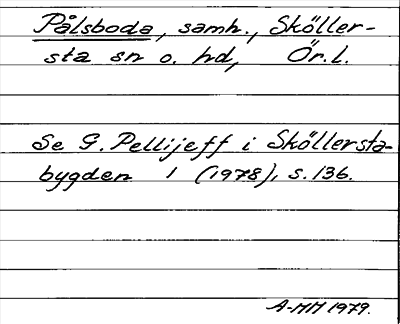 Pålsboda, samh., Sköller-
sta sn o. hd, Ör.l.
Se G. Pellijeff i Sköllersta-
bygden 1 (1978), s. 136.
A-MM 1979.